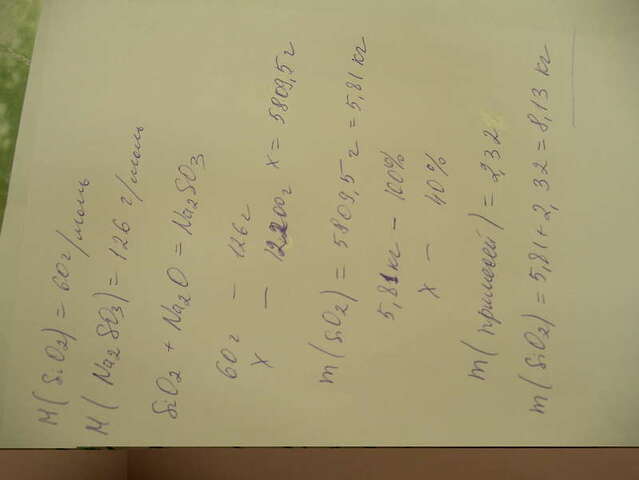 M(SiO2) = 60 г/моль
M(Na2SO3) = 126 г/моль
SiO2 + Na2O = Na2SO3
60г — 126г
x — 12200г x = 5809,5г
m(SiO2) = 5809,5г = 5,81 кг
5,81кг — 100%
x — 40%
m(примесей) = 2,32
m(SiO2) = 5,81 + 2,32 = 8,13 кг